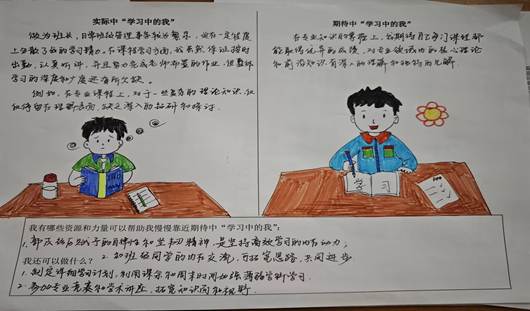 实际中“学习中的我”
做为班长,日常班级管理事务较为繁杂,也在一定程度
上分散了我的学习精力。在课程学习方面,我虽能保证按时
出勤,认真听讲,并且努力完成老师布置的作业,但整体
学习的深度和广度还有所欠缺。
例如,在专业课程上,对于一些复杂的理论知识,仅
仅停留在理解层面,缺乏深入的钻研和探讨。
期待中“学习中的我”
在专业知识的掌握上,我期待自己各门课程都
能取得优异的成绩,对专业领域内的核心理论
和前沿知识有深入的理解和独特的见解。
学 习
我有哪些资源和力量可以帮助我慢慢靠近期待中“学习中的我”:
1. 部队经历给予的自律性和坚韧精神,是坚持高效学习的内在动力;
我还可以做什么? 2. 和班级同学的内在交流,开拓思路,共同进步
1. 制定详细学习计划,利用课余和周末时间加强薄弱学科学习.
2. 参加专业竞赛和学术讲座,拓宽知识面和视野.